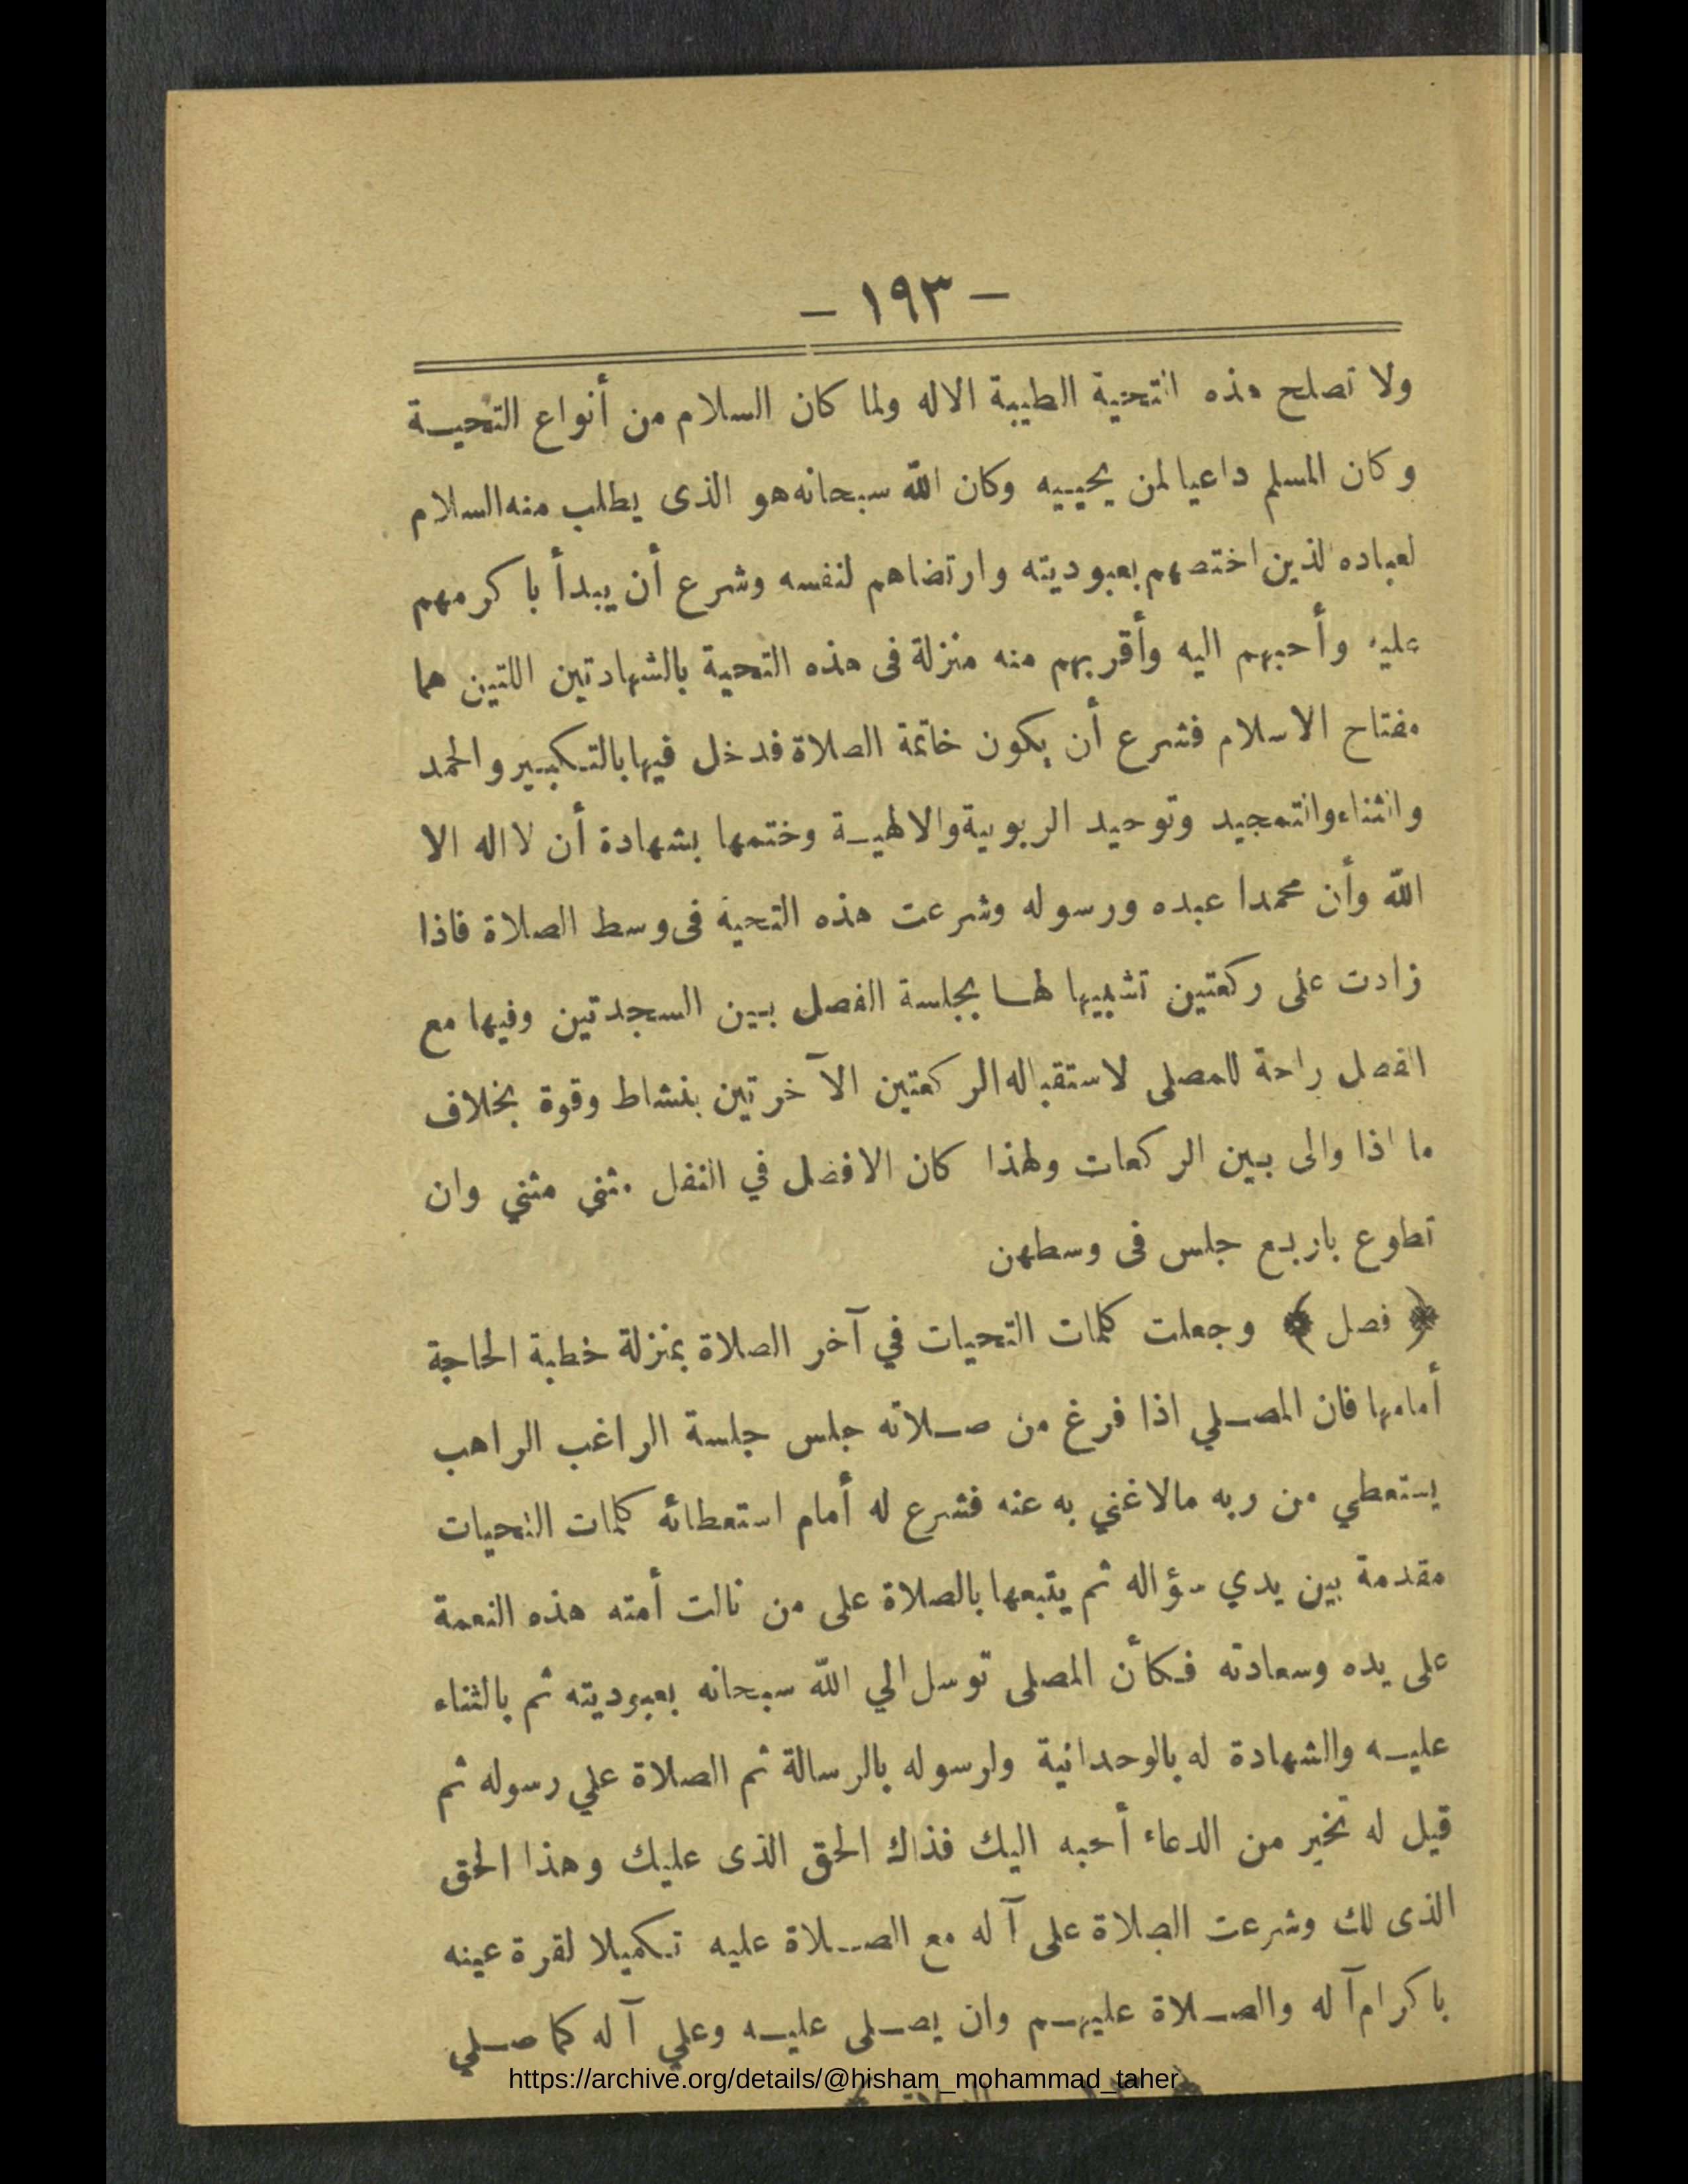 – ١٩٣ –
ولا تصلح هذه التحية الطيبة الا له ولما كان السلام من أنواع التحيـة
وكان المسلم داعيا لمن يحييه وكان الله سبحانه هو الذى يطلب منه السلام
لعباده الذين اختصهم بعبوديته وارتضاهم لنفسه وشرع أن يبدأ باكرمهم
عليه وأحبهم اليه وأقربهم منه منزلة فى هذه التحية بالشهادتين اللتين هما
مفتاح الاسلام فشرع أن يكون خاتمة الصلاة فدخل فيها بالتكبير والحمد
والثناء والتمجيد وتوحيد الربوبية والالهيـة وختمها بشهادة أن لا اله الا
الله وأن محمدا عبده ورسوله وشرعت هذه التحية فى وسط الصلاة فاذا
زادت على ركعتين تشبيها لها بجلسة الفصل بين السجدتين وفيها مع
الفصل راحة للمصلى لاستقباله الركعتين الآخرتين بنشاط وقوة بخلاف
ما اذا والى بين الركعات ولهذا كان الافضل في النفل مثني مثني وان
تطوع باربع جلس فى وسطهن
﴿ فصل ﴾ وجعلت كلمات التحيات في آخر الصلاة بمنزلة خطبة الحاجة
أمامها فان المصـلي اذا فرغ من صـلاته جلس جلسة الراغب الراهب
يستعطي من ربه مالا غني به عنه فشرع له أمام استعطائه كلمات التحيات
مقدمة بين يدي سؤاله ثم يتبعها بالصلاة على من نالت أمته هذه النعمة
على يده وسعادته فكأن المصلى توسل الي الله سبحانه بعبوديته ثم بالثناء
عليـه والشهادة له بالوحدانية ولرسوله بالرسالة ثم الصلاة علي رسوله ثم
قيل له تخير من الدعاء أحبه اليك فذاك الحق الذى عليك وهذا الحق
الذى لك وشرعت الصلاة على آله مع الصـلاة عليه تكميلا لقرة عينه
باكرام آله والصـلاة عليهـم وان يصـلى عليـه وعلي آله كما صـلي
https://archive.org/details/@hisham_mohammad_taher